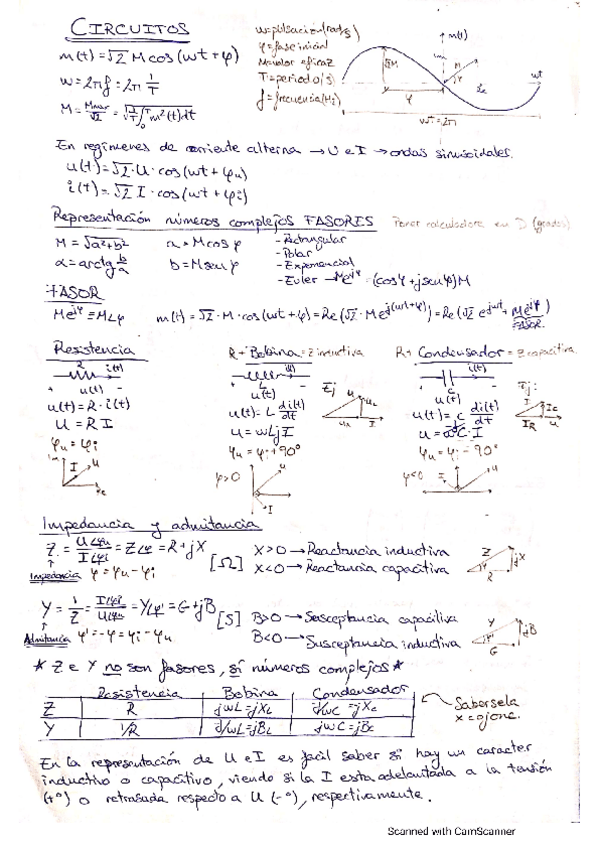 CIRCUITOS
m(t) = √2 M cos (wt + φ)
w = 2πf = 2π 1/T
M = Mmax/√2 = √(1/T ∫₀ᵀ m²(t) dt)
w = pulsación (rad/s)
φ = fase inicial
M = valor eficaz
T = periodo (s)
f = frecuencia (Hz)
m(t)
√2M
M
φ
wt
wT = 2π
En regímenes de corriente alterna → U e I → ondas sinusoidales.
u(t) = √2 · U · cos (wt + φu)
i(t) = √2 I · cos (wt + φi)
Representación números complejos FASORES Poner calculadora en D (grados)
M = √a²+b² a = M cos φ - Rectangular
α = arctg b/a b = M sen φ - Polar
- Exponencial
- Euler → Me^jφ = (cos φ + j sen φ) M
FASOR
Me^jφ ≡ M∠φ m(t) = √2 · M · cos (wt + φ) = Re (√2 · Me^j(wt+φ)) = Re (√2 e^jwt · Me^jφ)
FASOR
Resistencia R + Bobina = Z inductiva R + Condensador = Z capacitiva
R i(t)
+ u(t) -
u(t) = R · i(t)
U = R I
φu = φi
I U
L
u(t)
u(t) = L di(t)/dt
U = wLj I
φu = φi + 90°
φ > 0
U
I
i(t)
C
u(t)
φu = φi - 90°
φ < 0
Impedancia y admitancia
Z = U∠φu / I∠φi = Z∠φ = R + jX [Ω] X > 0 → Reactancia inductiva
X < 0 → Reactancia capacitiva
Impedancia φ = φu - φi
Z jX
R
Y = 1/Z = I∠φi / U∠φu = Y∠φ' = G + jB [S] B > 0 → Susceptancia capacitiva
B < 0 → Susceptancia inductiva
Admitancia φ' = -φ = φi - φu
Y jB
G
* Z e Y no son fasores, sí números complejos *
Resistencia Bobina Condensador
Z R jwL = jXL
Y 1/R jwC = jBc
Sabersela
En la representación de U e I es facil saber si hay un caracter
inductivo o capacitivo, viendo si la I esta adelantada a la tensión
(+°) o retrasada respecto a U (-°), respectivamente.
Scanned with CamScanner